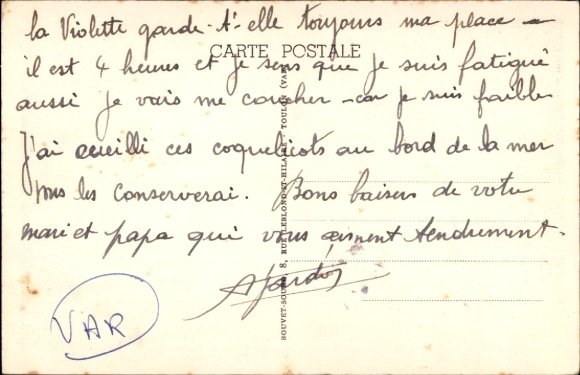 la Violette garde-t'-elle toujours ma place -
CARTE POSTALE
il est 4 heures et je sens que je suis fatigué
aussi je vais me coucher - car je suis faible
J'ai cueilli ces coquelicots au bord de la mer
les conserverai. Bons baisers de votre
mari et papa qui vous aiment tendrement.
VAR
BOUVET-SOU 8, RUE LEBLOND-ST-HILAIRE - TOULON (VAR)